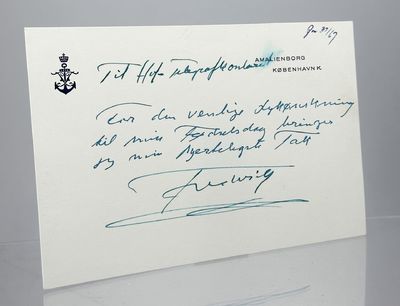 AMALIENBORG
KØBENHAVN K.
Til
For den venlige Lykønskning
til min Fødselsdag bringes
jeg min hjerteligste Tak